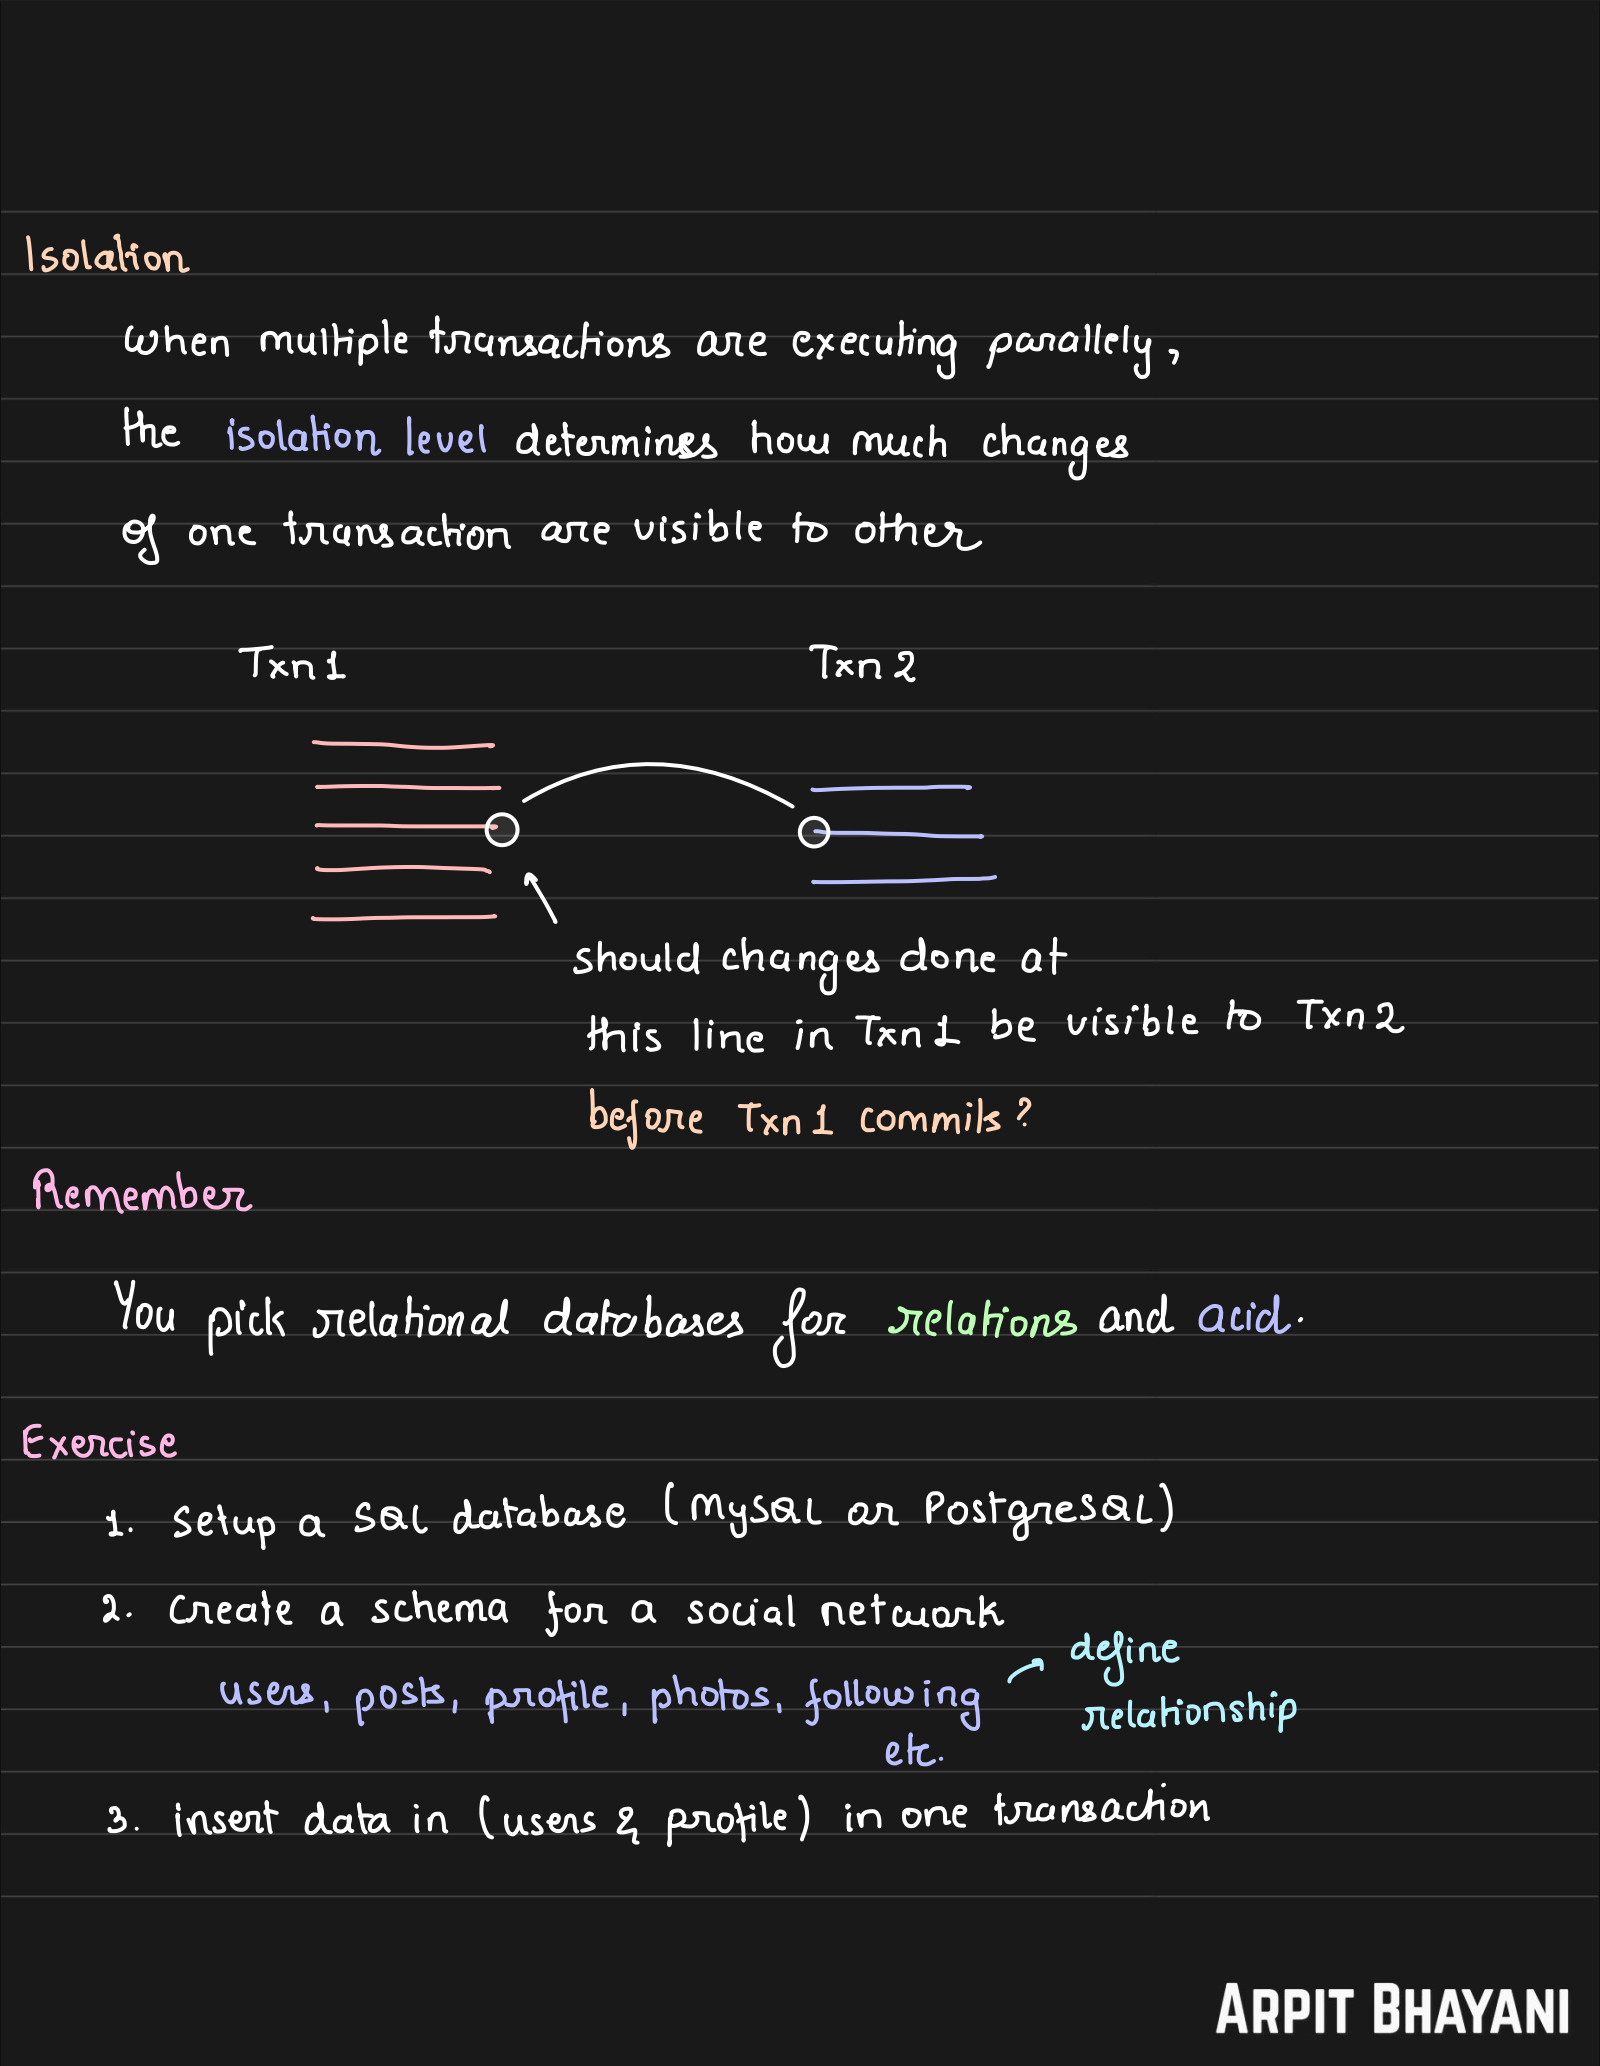 Isolation
when multiple transactions are executing parallely,
the isolation level determines how much changes
of one transaction are visible to other
Txn 1 Txn 2
should changes done at
this line in Txn 1 be visible to Txn 2
before Txn 1 commits?
Remember
You pick relational databases for relations and acid.
Exercise
1. Setup a SQL database (MySQL or PostgreSQL)
2. create a schema for a social network
define
users, posts, profile, photos, following
relationship
etc.
3. insert data in (users & profile) in one transaction
ARPIT BHAYANI